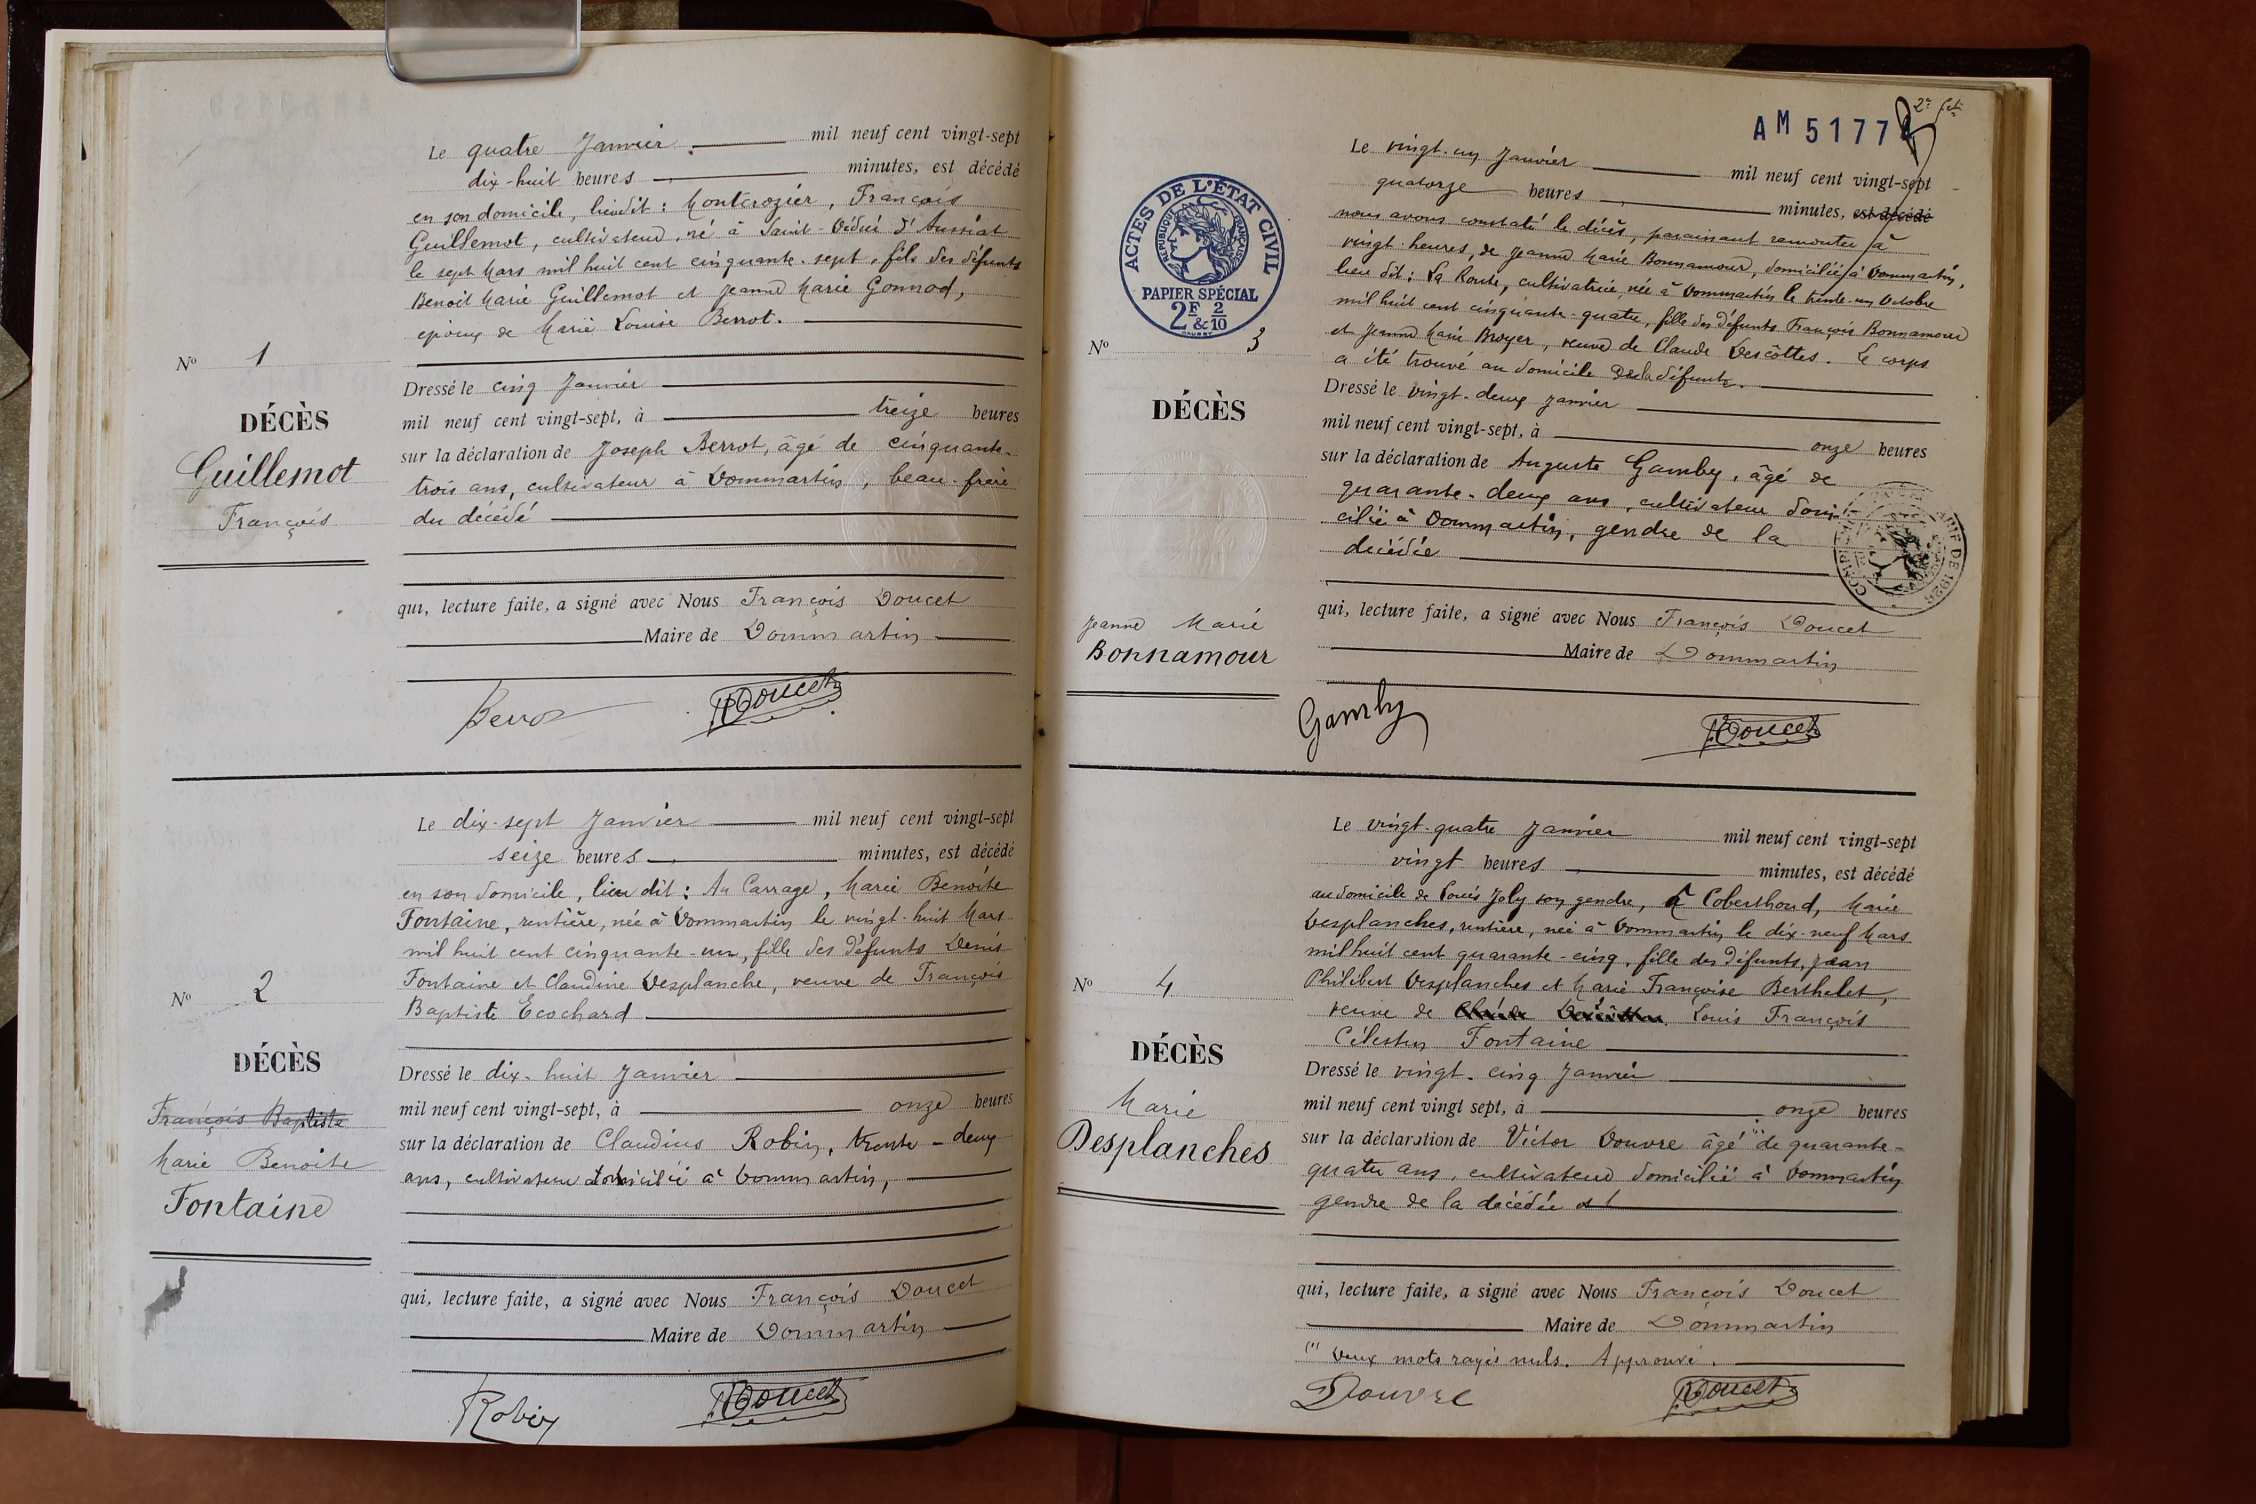 Le quatre Janvier mil neuf cent vingt-sept
dix-huit heures minutes, est décédé
en son domicile, lieudit : Montcrozier, François
Guillemot, cultivateur, né à Saint-Didier d'Aussiat
le sept Mars mil huit cent cinquante-sept, fils des défunts
Benoit Marie Guillemot et Jeanne Marie Gonnod,
époux de Marie Louise Berrot.
No 1
DÉCÈS
Guillemot
François
Dressé le cinq Janvier
mil neuf cent vingt-sept, à treize heures
sur la déclaration de Joseph Berrot, âgé de cinquante-
trois ans, cultivateur à Dommartin, beau-frère
du décédé
qui, lecture faite, a signé avec Nous François Doucet
Maire de Dommartin
Berrot
F. Doucet
Le dix-sept Janvier mil neuf cent vingt-sept
seize heures minutes, est décédé
en son domicile, lieu dit : Au Carrage, Marie Benoîte
Fontaine, rentière, née à Dommartin le vingt-huit Mars
mil huit cent cinquante-un, fille des défunts Denis
Fontaine et Claudine Desplanche, veuve de François
Baptiste Ecochard
No 2
DÉCÈS
François Baptiste
Marie Benoîte
Fontaine
Dressé le dix-huit Janvier
mil neuf cent vingt-sept, à onze heures
sur la déclaration de Claudius Robin, trente-deux
ans, cultivateur domicilié à Dommartin,
qui, lecture faite, a signé avec Nous François Doucet
Maire de Dommartin
Robin
F. Doucet
2e
AM 5177
ACTES DE L'ÉTAT CIVIL
RÉPUBLIQUE FRANÇAISE
PAPIER SPÉCIAL
2F & 2/10
Le vingt-un Janvier mil neuf cent vingt-sept
quatorze heures minutes, est décédé
nous avons constaté le décès, paraissant remonter à
vingt heures, de Jeanne Marie Bonnamour, domiciliée à Dommartin,
lieu dit : La Route, cultivatrice, née à Dommartin le trente-un Octobre
mil huit cent cinquante-quatre, fille des défunts François Bonnamour
et Jeanne Marie Broyer, veuve de Claude Descôttes. Le corps
a été trouvé au domicile de la défunte.
No 3
DÉCÈS
Jeanne Marie
Bonnamour
Dressé le vingt-deux Janvier
mil neuf cent vingt-sept, à onze heures
sur la déclaration de Auguste Gamby, âgé de
quarante-deux ans, cultivateur domi-
cilié à Dommartin, gendre de la
décédée
DE 1926
qui, lecture faite, a signé avec Nous François Doucet
Maire de Dommartin
Gamby
F. Doucet
Le vingt-quatre Janvier mil neuf cent vingt-sept
vingt heures minutes, est décédé
au domicile de Louis Joly son gendre, à Coberthoud, Marie
Desplanches, rentière, née à Dommartin le dix-neuf Mars
mil huit cent quarante-cinq, fille des défunts, Jean
Philibert Desplanches et Marie Françoise Berthelet,
veuve de Louis François
Célestin Fontaine
No 4
DÉCÈS
Marie
Desplanches
Dressé le vingt-cinq Janvier
mil neuf cent vingt sept, à onze heures
sur la déclaration de Victor Douvre âgé de quarante-
quatre ans, cultivateur domicilié à Dommartin
gendre de la décédée
qui, lecture faite, a signé avec Nous François Doucet
Maire de Dommartin
(1) Deux mots rayés nuls. Approuvé.
Douvre
F. Doucet